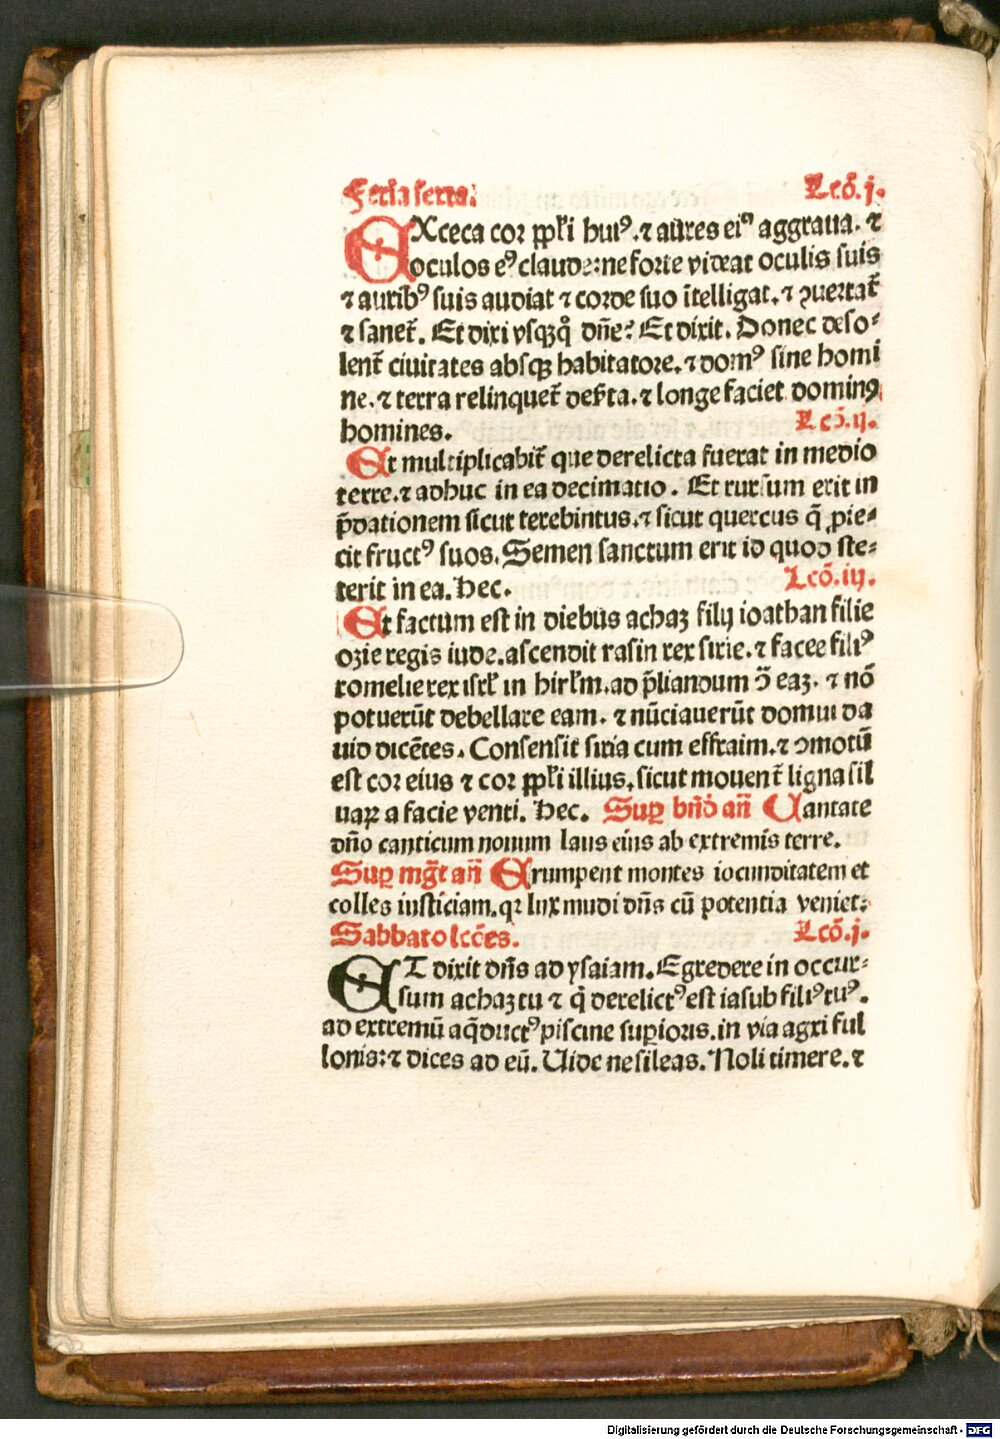 Feria sexta. Lcō. j.
EXceca cor ppl̄i huiꝰ. ⁊ aures eiꝰ aggraua. ⁊
oculos eꝰ claude: ne forte videat oculis suis
⁊ auribꝰ suis audiat ⁊ corde suo ītelligat. ⁊ ꝯuertat̄
⁊ sanet̄. Et dixi vsqꝫq̊ dn̄e? Et dixit. Donec deso⸗
lent̄ ciuitates absqꝫ habitatore. ⁊ domꝰ sine homi
ne. ⁊ terra relinquet̄ des̄ta. ⁊ longe faciet dominꝰ
homines. Lcō. ij.
Et multiplicabit̄ que derelicta fuerat in medio
terre. ⁊ adhuc in ea decimatio. Et rursum erit in
p̄dationem sicut terebintus. ⁊ sicut quercus q̄ ꝓie⸗
cit fructꝰ suos. Semen sanctum erit id quod ste⸗
terit in ea. Hec. Lcō. iij.
Et factum est in diebus achaz filij ioathan filie
ozie regis iude. ascendit rasin rex sirie. ⁊ facee filiꝰ
romelie rex isrl̄ in hirl̄m. ad p̄liandum ↄ̄ eaꝫ. ⁊ nō
potuerūt debellare eam. ⁊ nūciauerūt domui da
uid dicētes. Consensit siria cum effraim. ⁊ ꝯmotū
est cor eius ⁊ cor ppl̄i illius. sicut mouent̄ ligna sil
uaꝝ a facie venti. Hec. Suꝑ bn̄d an̄ Cantate
dn̄o canticum nouum laus eius ab extremis terre.
Suꝑ mḡt an̄ Erumpent montes iocunditatem et
colles iusticiam. qꝛ lux mūdi dn̄s cū potentia veniet.
Sabbato lcōes. Lcō. j.
ET dixit dn̄s ad ysaiam. Egredere in occur⸗
sum achaz tu ⁊ q̄ derelictꝰ est iasub filiꝰ tuꝰ.
ad extremū aq̄ductꝰ piscine suꝑioris. in via agri ful
lonis: ⁊ dices ad eū. Uide ne sileas. Noli timere. ⁊
Digitalisierung gefördert durch die Deutsche Forschungsgemeinschaft - DFG